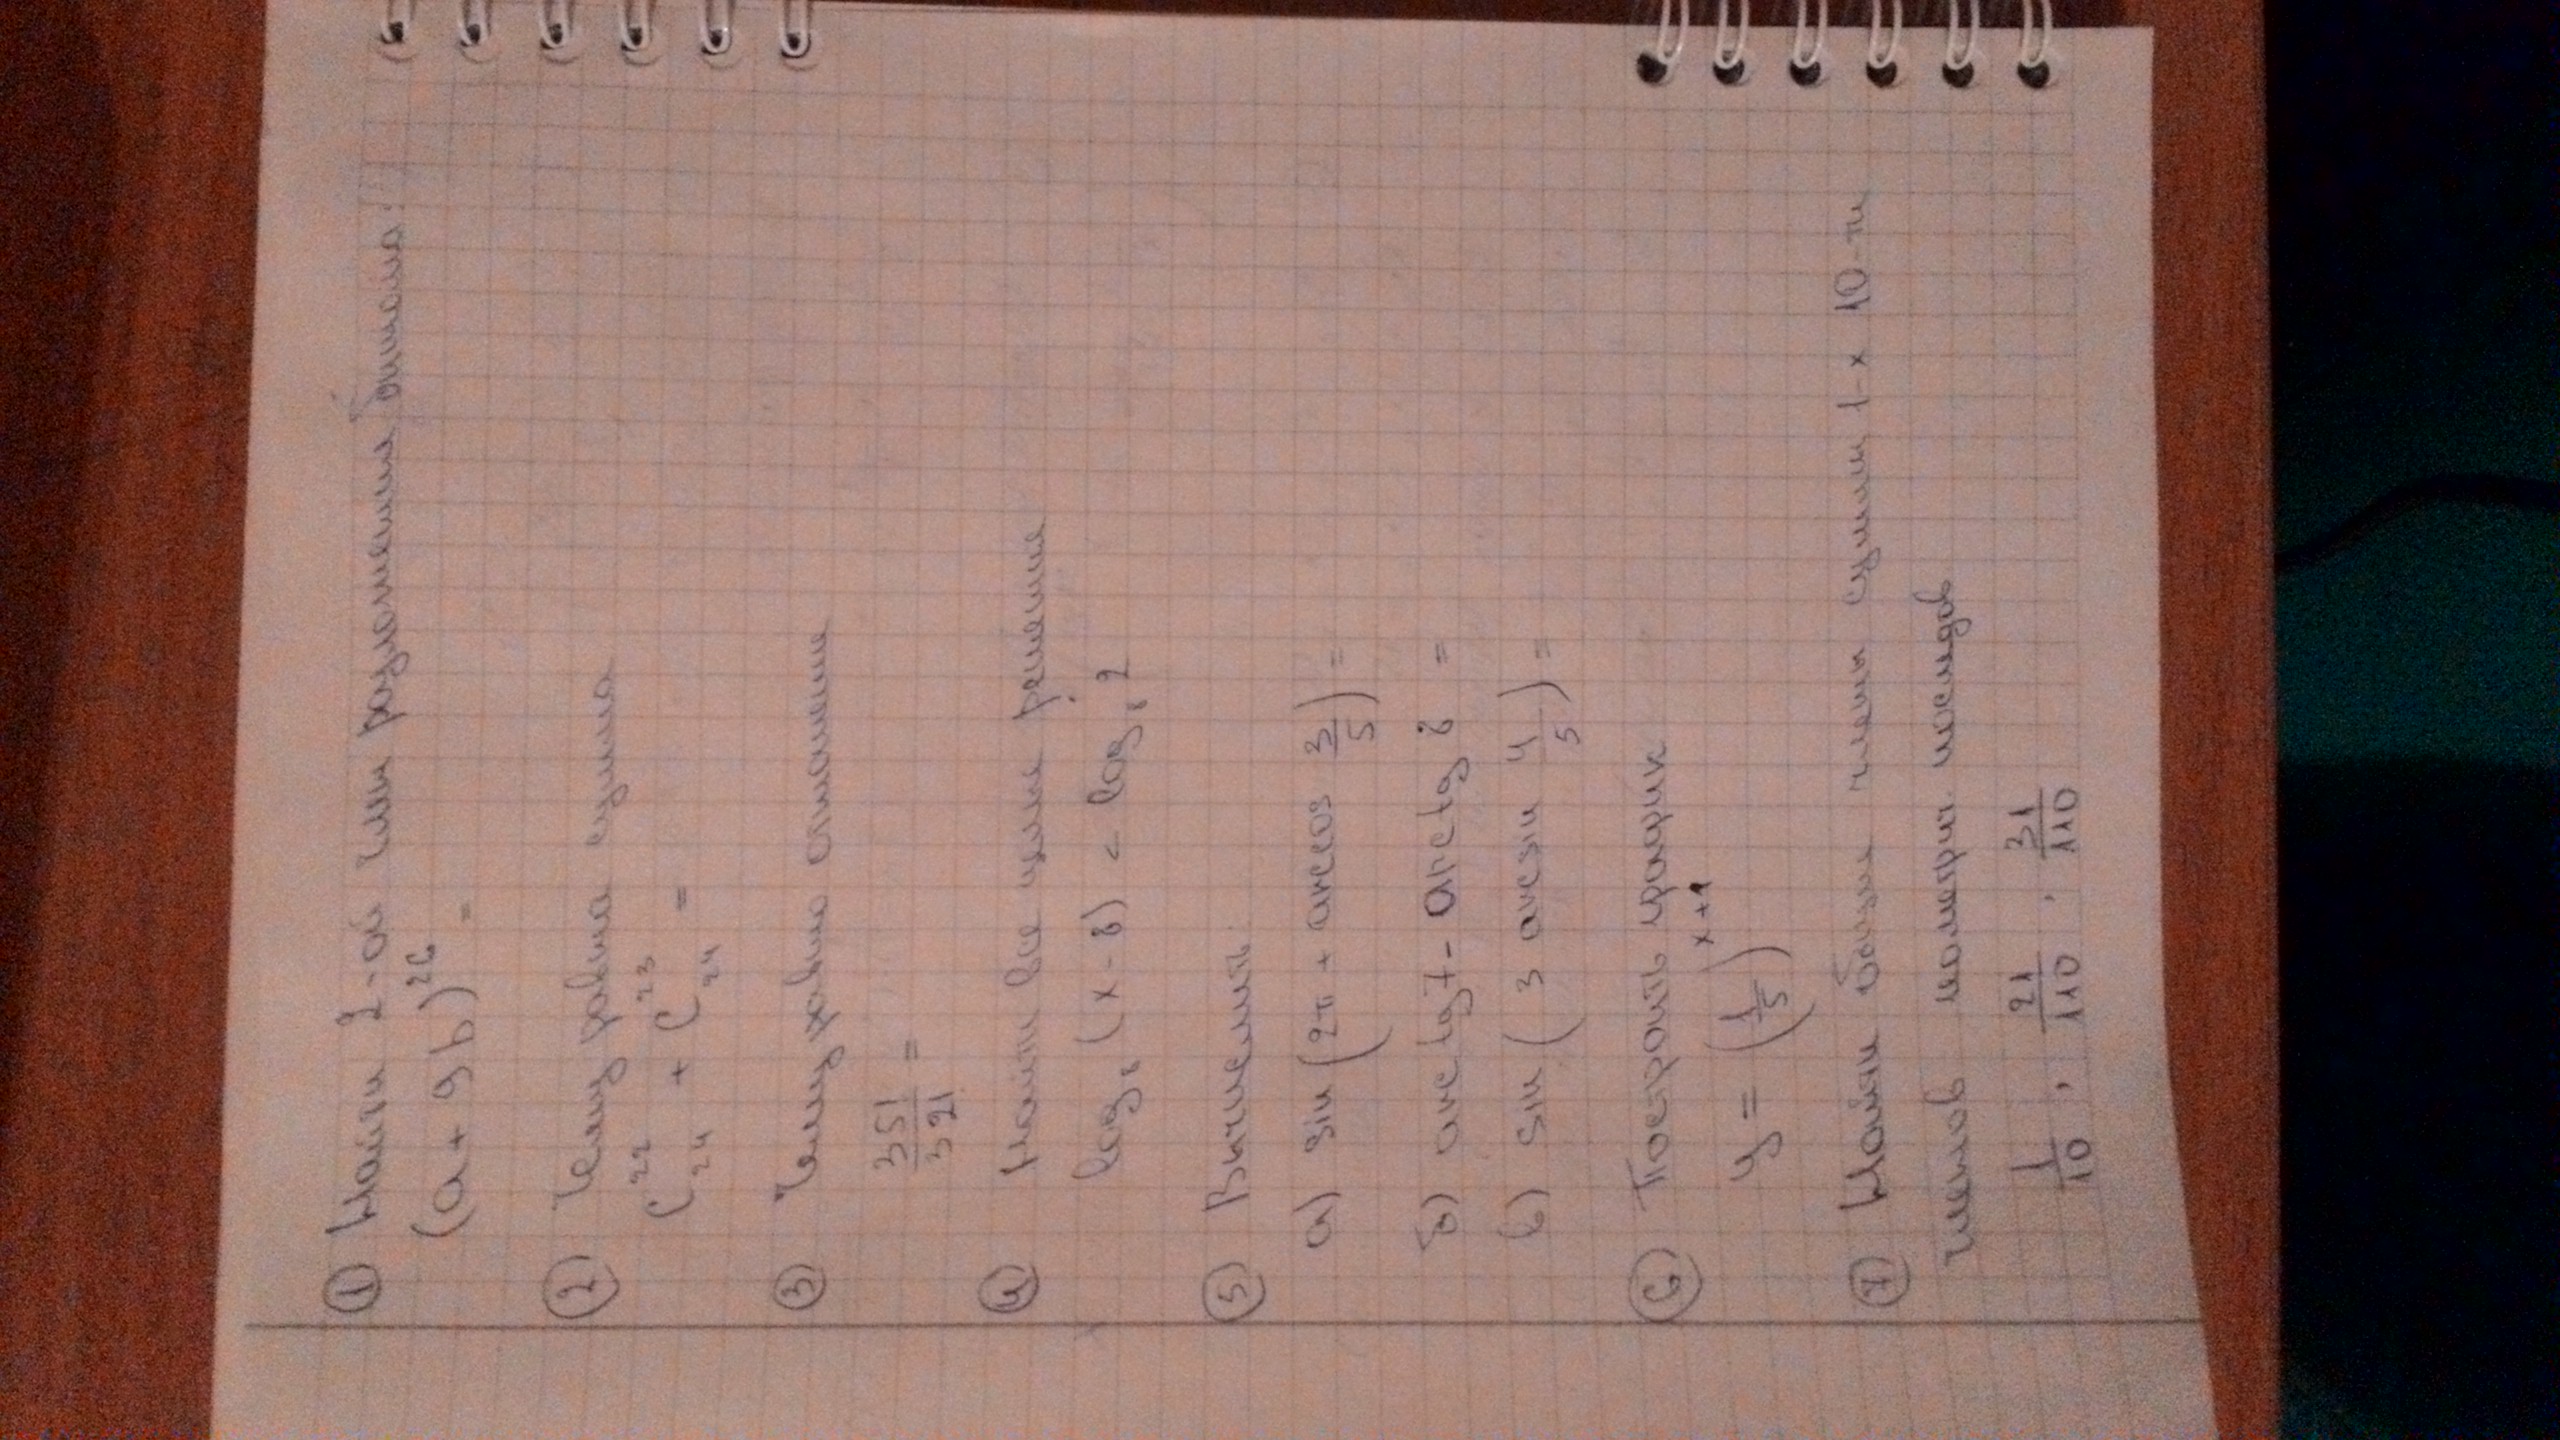 ① Найти 2-ой член разложения бинома:
(a + 9b)²⁶ =
② Чему равна сумма
C₂₄²² + C₂₄²³ =
③ Чему равно отношение
35! / 32! =
④ Найти все целые решение
log₈ (x - 8) < log₈ 2
⑤ Вычислить:
а) sin (2π + arccos 3/5) =
б) arctg 7 - arcctg 8 =
в) sin (3 arcsin 4/5) =
⑥ Построить график
y = (1/5)ˣ⁺¹
⑦ Найти общие члены суммы 1-х 10-ти
членов геометрич последов
1/10 , 21/110 , 31/110